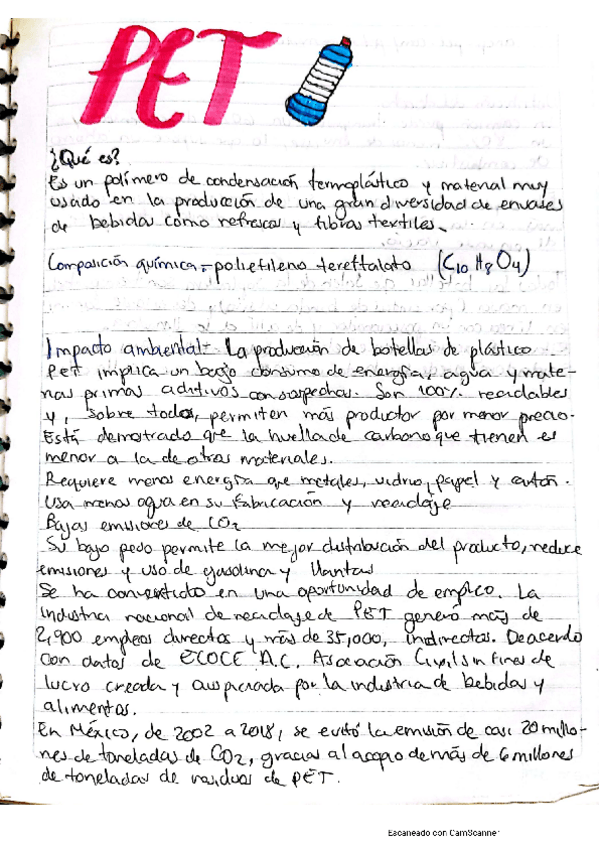 PET
¿Qué es?
Es un polímero de condensación termoplástico y material muy
usado en la producción de una gran diversidad de envases
de bebidas como refrescos y fibras textiles.
Composición química = polietileno tereftalato (C10 H8 O4)
Impacto ambiental = La producción de botellas de plástico
PET implica un bajo consumo de energía, agua y mate-
rias primas aditivos con sospechas. Son 100% reciclables
y, sobre todos, permiten más productor por menor precio.
Está demostrado que la huella de carbono que tienen es
menor a la de otros materiales.
Requiere menos energía que metales, vidrio, papel y cartón.
Usa menos agua en su fabricación y reciclaje
Bajas emisiones de CO2
Su bajo peso permite la mejor distribución del producto, reduce
emisiones y uso de gasolina y llantas
Se ha convertido en una oportunidad de empleo. La
industria nacional de reciclaje de PET generó más de
2,900 empleos directos y más de 35,000, indirectos. De acuerdo
con datos de ECOCE A.C. Asociación Civil sin fines de
lucro creada y auspiciada por la industria de bebidas y
alimentos.
En México, de 2002 a 2018, se evitó la emisión de casi 20 millo-
nes de toneladas de CO2, gracias al acopio de más de 6 millones
de toneladas de residuos de PET.
Escaneado con CamScanner